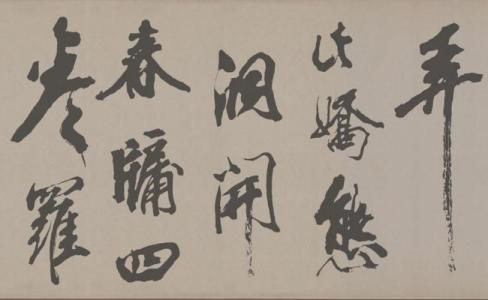 弄
此嬌態
洞開
春牖四
卷羅